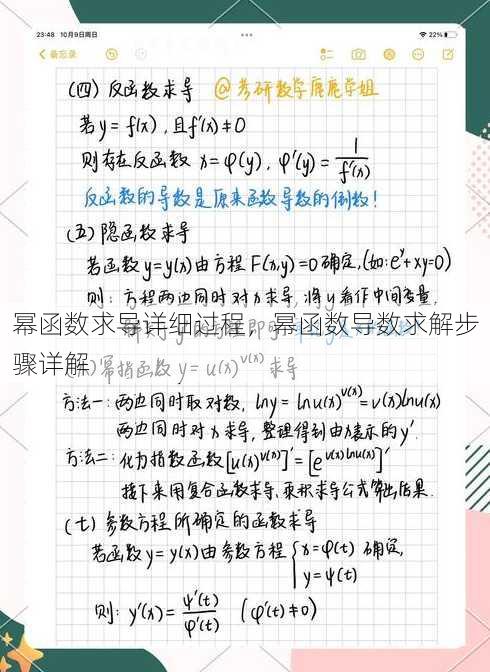 23:48 10月9日周日
22%
备忘录
(四) 反函数求导 @考研数学鹿鹿学姐
若y=f(x),且f′(x)≠0
则存在反函数 x=φ(y), φ′(y)=1/f′(x)
反函数的导数是原来函数导数的倒数!
(五) 隐函数求导
若函数y=y(x)由方程F(x,y)=0确定,(如:eʸ+xy=0)
则:方程两边同时对x求导,将y看作中间变量,
幂函数求导详细过程,幂函数导数求解步
骤详解
幂指函数 y=u(x)^v(x) 求导
方法一:两边同时取对数, lny=lnu(x)^v(x)=v(x)lnu(x)
两边同时对x求导,整理得到由x表示的y′.
方法二:化为指数函数[u(x)^v(x)]′=[e^v(x)lnu(x)]′
接下来用复合函数求导、乘积求导公式算出结果.
(七) 参数方程所确定的函数求导
若函数y=y(x)由参数方程{x=φ(t) 确定,
y=ψ(t)
则: y′(x)=ψ′(t)/φ′(t) (φ′(t)≠0)